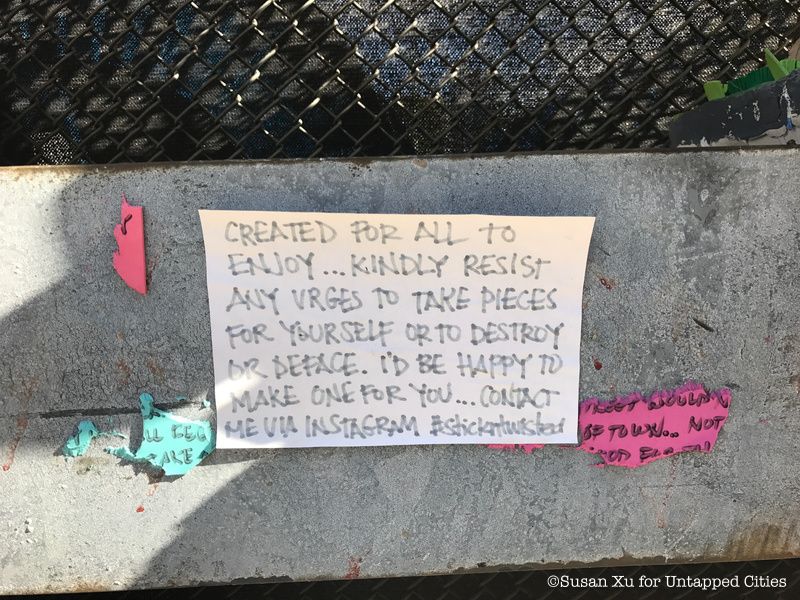 CREATED FOR ALL TO
ENJOY... KINDLY RESIST
ANY URGES TO TAKE PIECES
FOR YOURSELF OR TO DESTROY
OR DEFACE. I'D BE HAPPY TO
MAKE ONE FOR YOU... CONTACT
ME VIA INSTAGRAM #stickrtwisted
OF TOWN... NOT
©Susan Xu for Untapped Cities